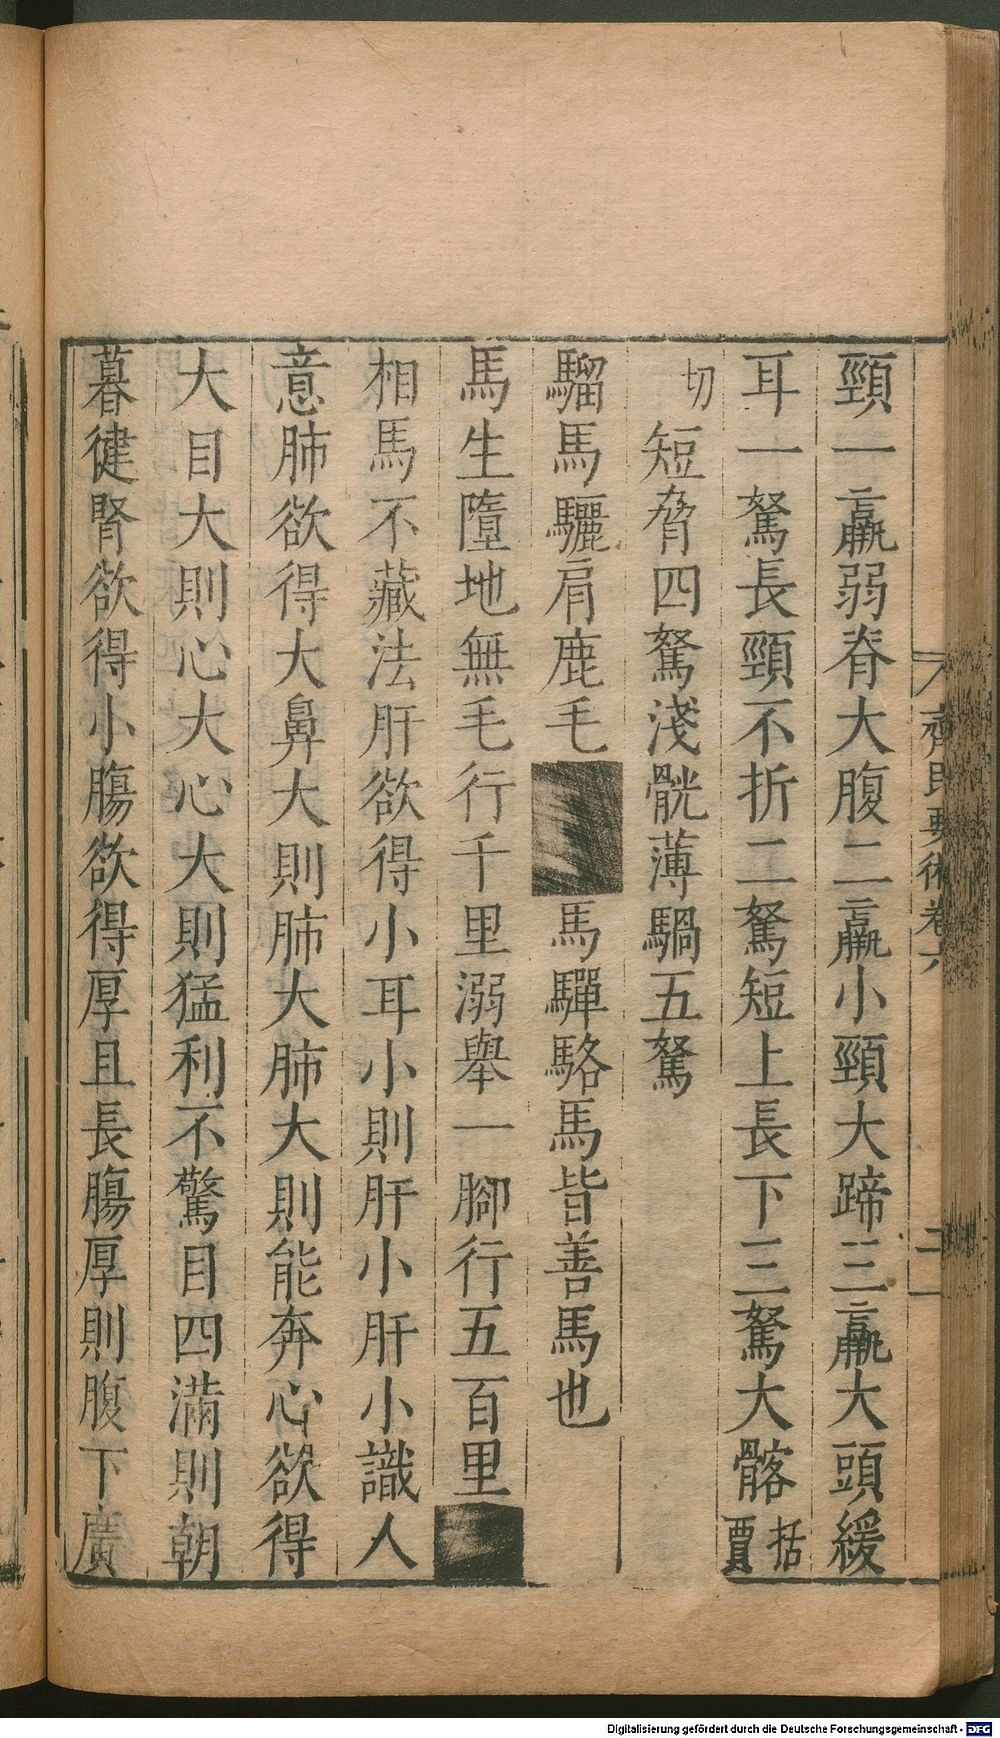 頸一羸弱脊大腹二羸小頸大蹄三羸大頭緩
耳一駑長頸不折二駑短上長下三駑大髂枯賈
切短脅四駑淺髖薄騧五駑
騮馬驪肩鹿毛馬驒駱馬皆善馬也
馬生墮地無毛行千里溺舉一腳行五百里
相馬不藏法肝欲得小耳小則肝小肝小識人
意肺欲得大鼻大則肺大肺大則能奔心欲得
大目大則心大心大則猛利不驚目四滿則朝
暮健腎欲得小腸欲得厚且長腸厚則腹下廣
齊民要術卷六
二
Digitalisierung gefördert durch die Deutsche Forschungsgemeinschaft - DFG